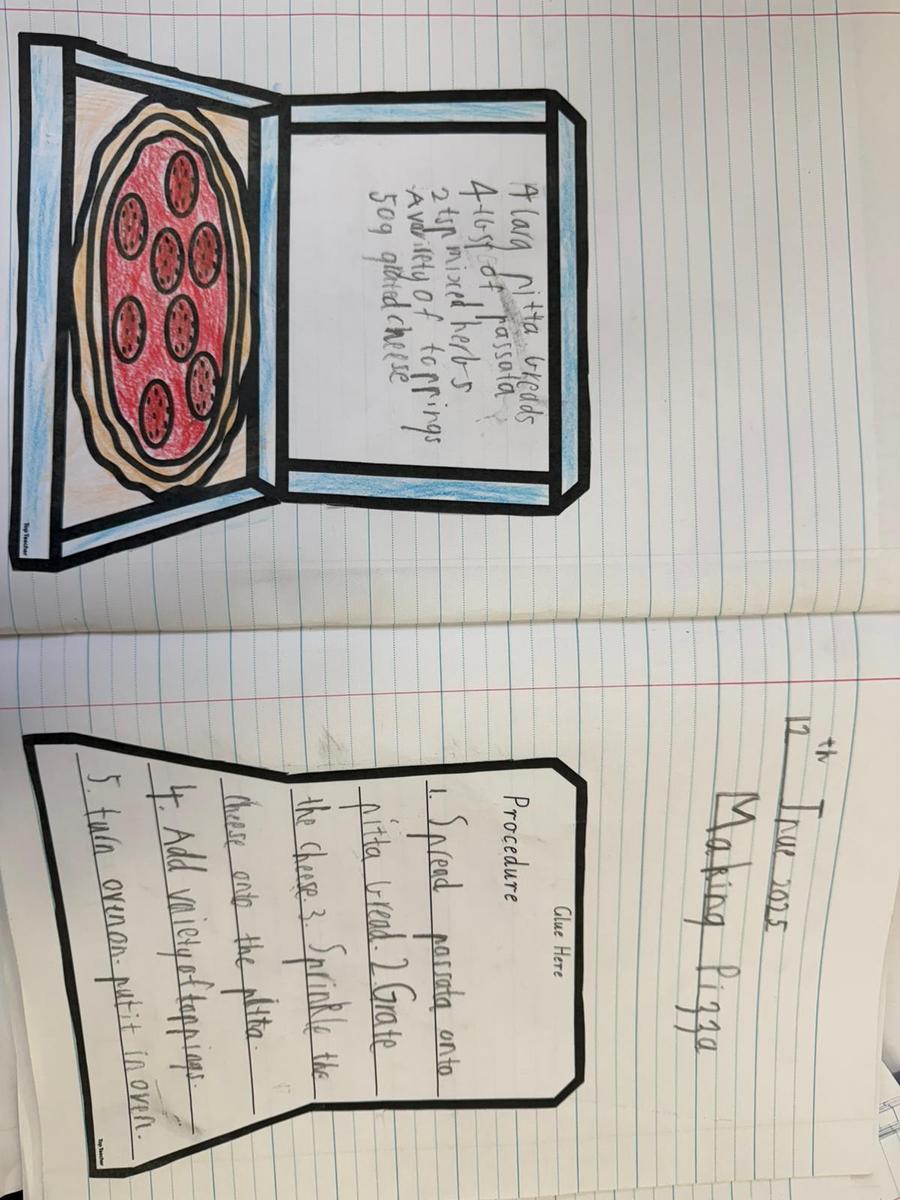 A larg pitta breads
4 tbsp of passata
2 tsp mixed herbs
A varirety of toppings
50g grated cheese
Top Teacher
12th June 2025
Making Pizza
Glue Here
Procedure
1. Spread passata onto
pitta bread. 2. Grate
the cheese. 3. Sprinkle the
cheese onto the pitta.
4. Add vaiety of toppings.
5. turn oven on. put it in oven.
Top Teacher